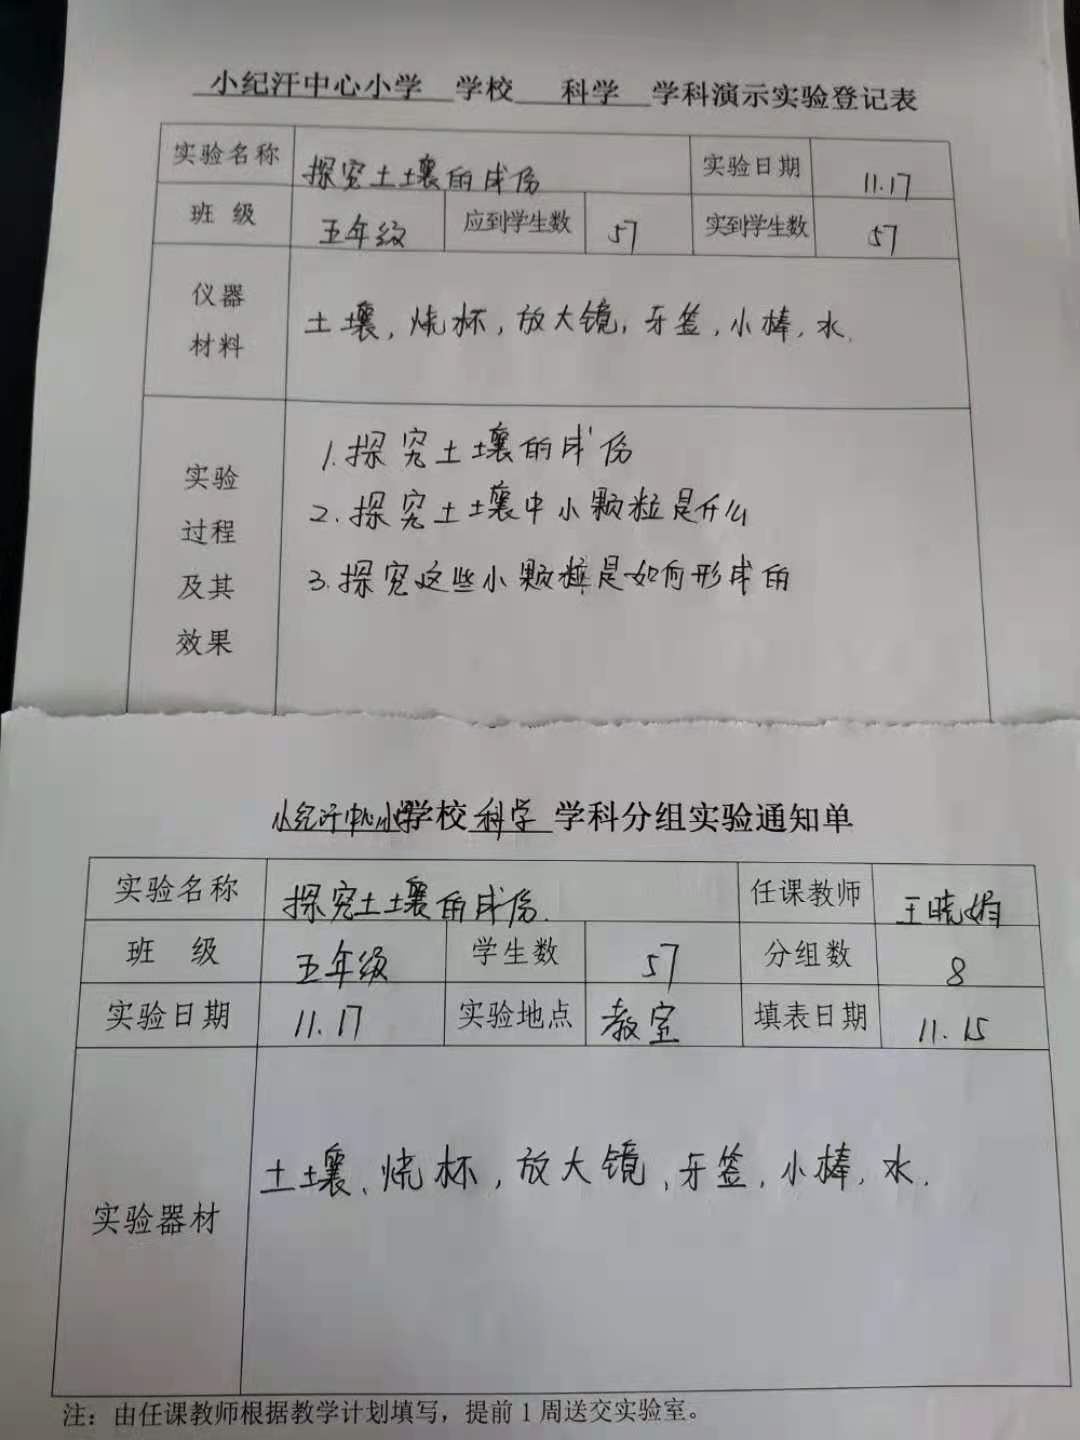 小纪汗中心小学 学校 科学 学科演示实验登记表
实验名称 探究土壤的成份 实验日期 11.17
班 级 五年级 应到学生数 57 实到学生数 57
仪器材料 土壤,烧杯,放大镜,牙签,小棒,水.
实验过程及其效果
1.探究土壤的成份
2.探究土壤中小颗粒是什么
3.探究这些小颗粒是如何形成的
小纪汗中心小学学校 科学 学科分组实验通知单
实验名称 探究土壤的成份. 任课教师 王晓娟
班 级 五年级 学生数 57 分组数 8
实验日期 11.17 实验地点 教室 填表日期 11.15
实验器材 土壤、烧杯,放大镜,牙签,小棒,水.
注：由任课教师根据教学计划填写，提前1周送交实验室。